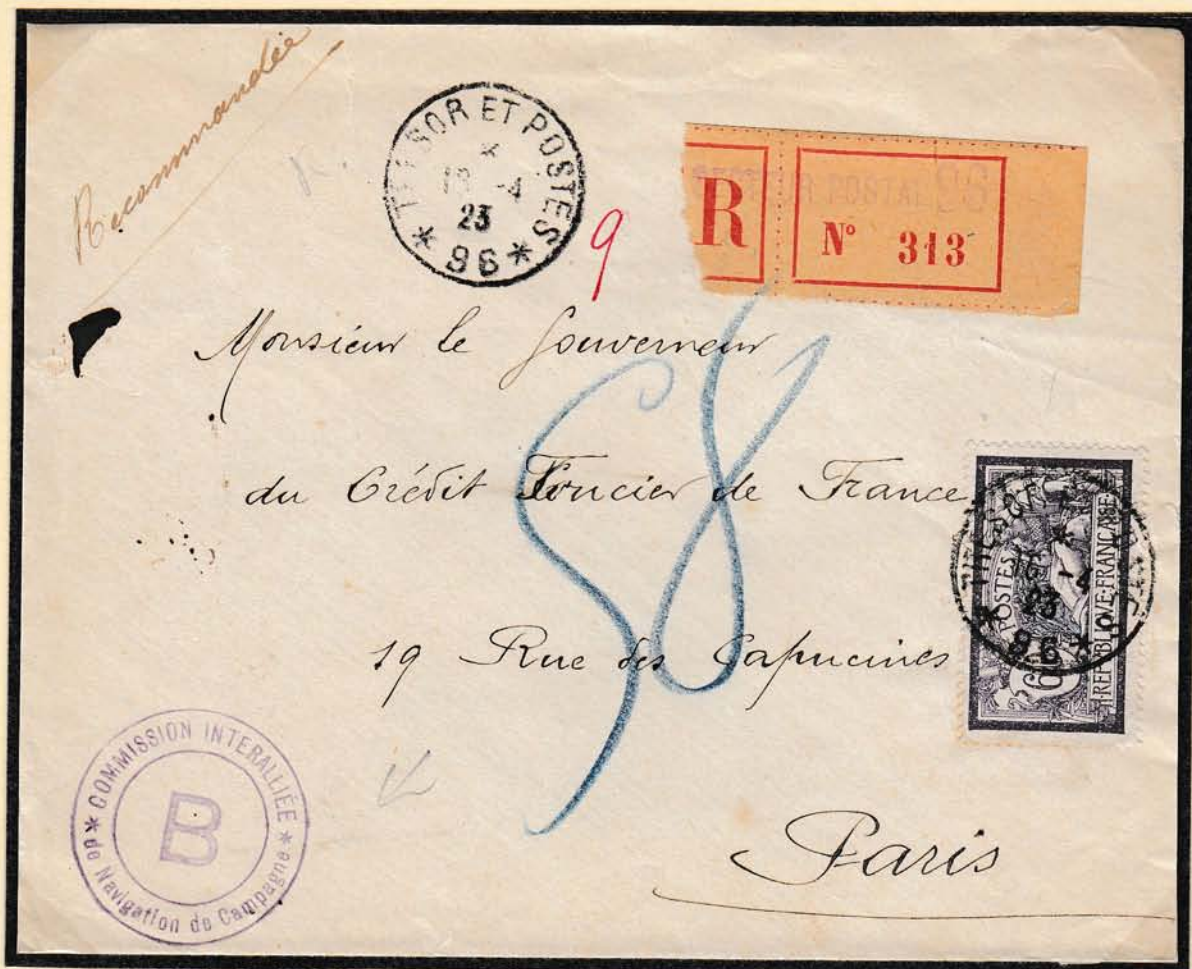 Recommandée
TRESOR ET POSTES
* 96 *
-4
23
9
R
SECTEUR POSTAL 96
N° 313
Monsieur le Gouverneur
du Crédit Foncier de France
19 Rue des Capucines
Paris
58
POSTES
REPUBLIQUE FRANÇAISE
-4
23
* 96 *
COMMISSION INTERALLIÉE
* de Navigation de Campagne *
B